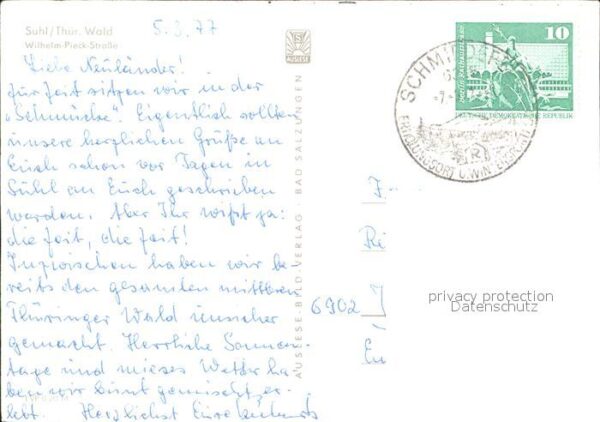 Suhl/Thür. Wald
Wilhelm-Pieck-Straße
5.3.77
Liebe Neuländer!
Zur Zeit sitzen wir in der
"Schmücke". Eigentlich sollten
unsere herzlichen Grüße an
Euch schon vor Tagen in
Suhl an Euch geschrieben
werden. Aber Ihr wißt ja:
die Zeit, die Zeit!
Inzwischen haben wir be-
reits den gesamten mittleren
Thüringer Wald unsicher
gemacht. Herrliche Sonnen-
tage und mieses Wetter ha-
ben wir bunt gemischt er-
lebt. Herzlichst Eure
AUSLESE-BILD-VERLAG · BAD SALZUNGEN
10
DEUTSCHE DEMOKRATISCHE REPUBLIK
ERHOLUNGSORT U. WINTERSPORT
6902 J
Ri
privacy protection
Datenschutz